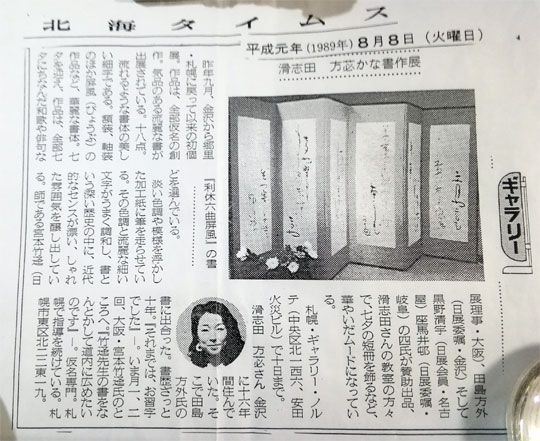 北海タイムス
平成元年(1989年)8月8日(火曜日)
滑志田 方苾かな書作展
ギャラリー
昨年九月、金沢から郷里
・札幌に戻って以来の初個
展。作品は、全部仮名の創
作。気品のある流麗な書が
出展されている。十八点。
流れるような書体の美し
い細字である。額装、軸装
のほか屏風(びょうぶ)の
作品など、華麗な書体。七
夕を迎え、作品は、全部七
夕にちなんだ和歌や俳句な
『利休六曲屏風』の書
どを選んでいる。
淡い色調や模様を浮かし
た加工紙に筆を走らせてい
る。その色調と流麗な細い
文字がうまく調和し、書と
いう深い歴史の中に、近代
的なセンスが漂い、しゃれ
た雰囲気を醸し出してい
る。師である宮本竹逕(日
展理事・大阪)、田島方外
(日展委嘱・金沢)そして
黒野清宇(日展会員・名古
屋)座馬井邨(日展委嘱・
岐阜)の四氏が賛助出品、
滑志田さんの教室の方々
で、七夕の短冊を飾るなど、
華やいだムードになってい
る。
札幌・ギャラリー・ノル
テ(中央区北一西六、安田
火災ビル)で十日まで。
滑志田 方苾さん 金沢
に十六年
間住んで
いた。そ
こで田島
方外氏の
書に出合った。書歴ざっと
十年。「それまでは、お習字
でした」―。いま月一、二
回、大阪・宮本竹逕氏のと
ころへ。「竹逕先生の書をな
んとかして道内に広めたい
のです」―。仮名専門。札
幌で指導を続けている。札
幌市東区北二二東一九。